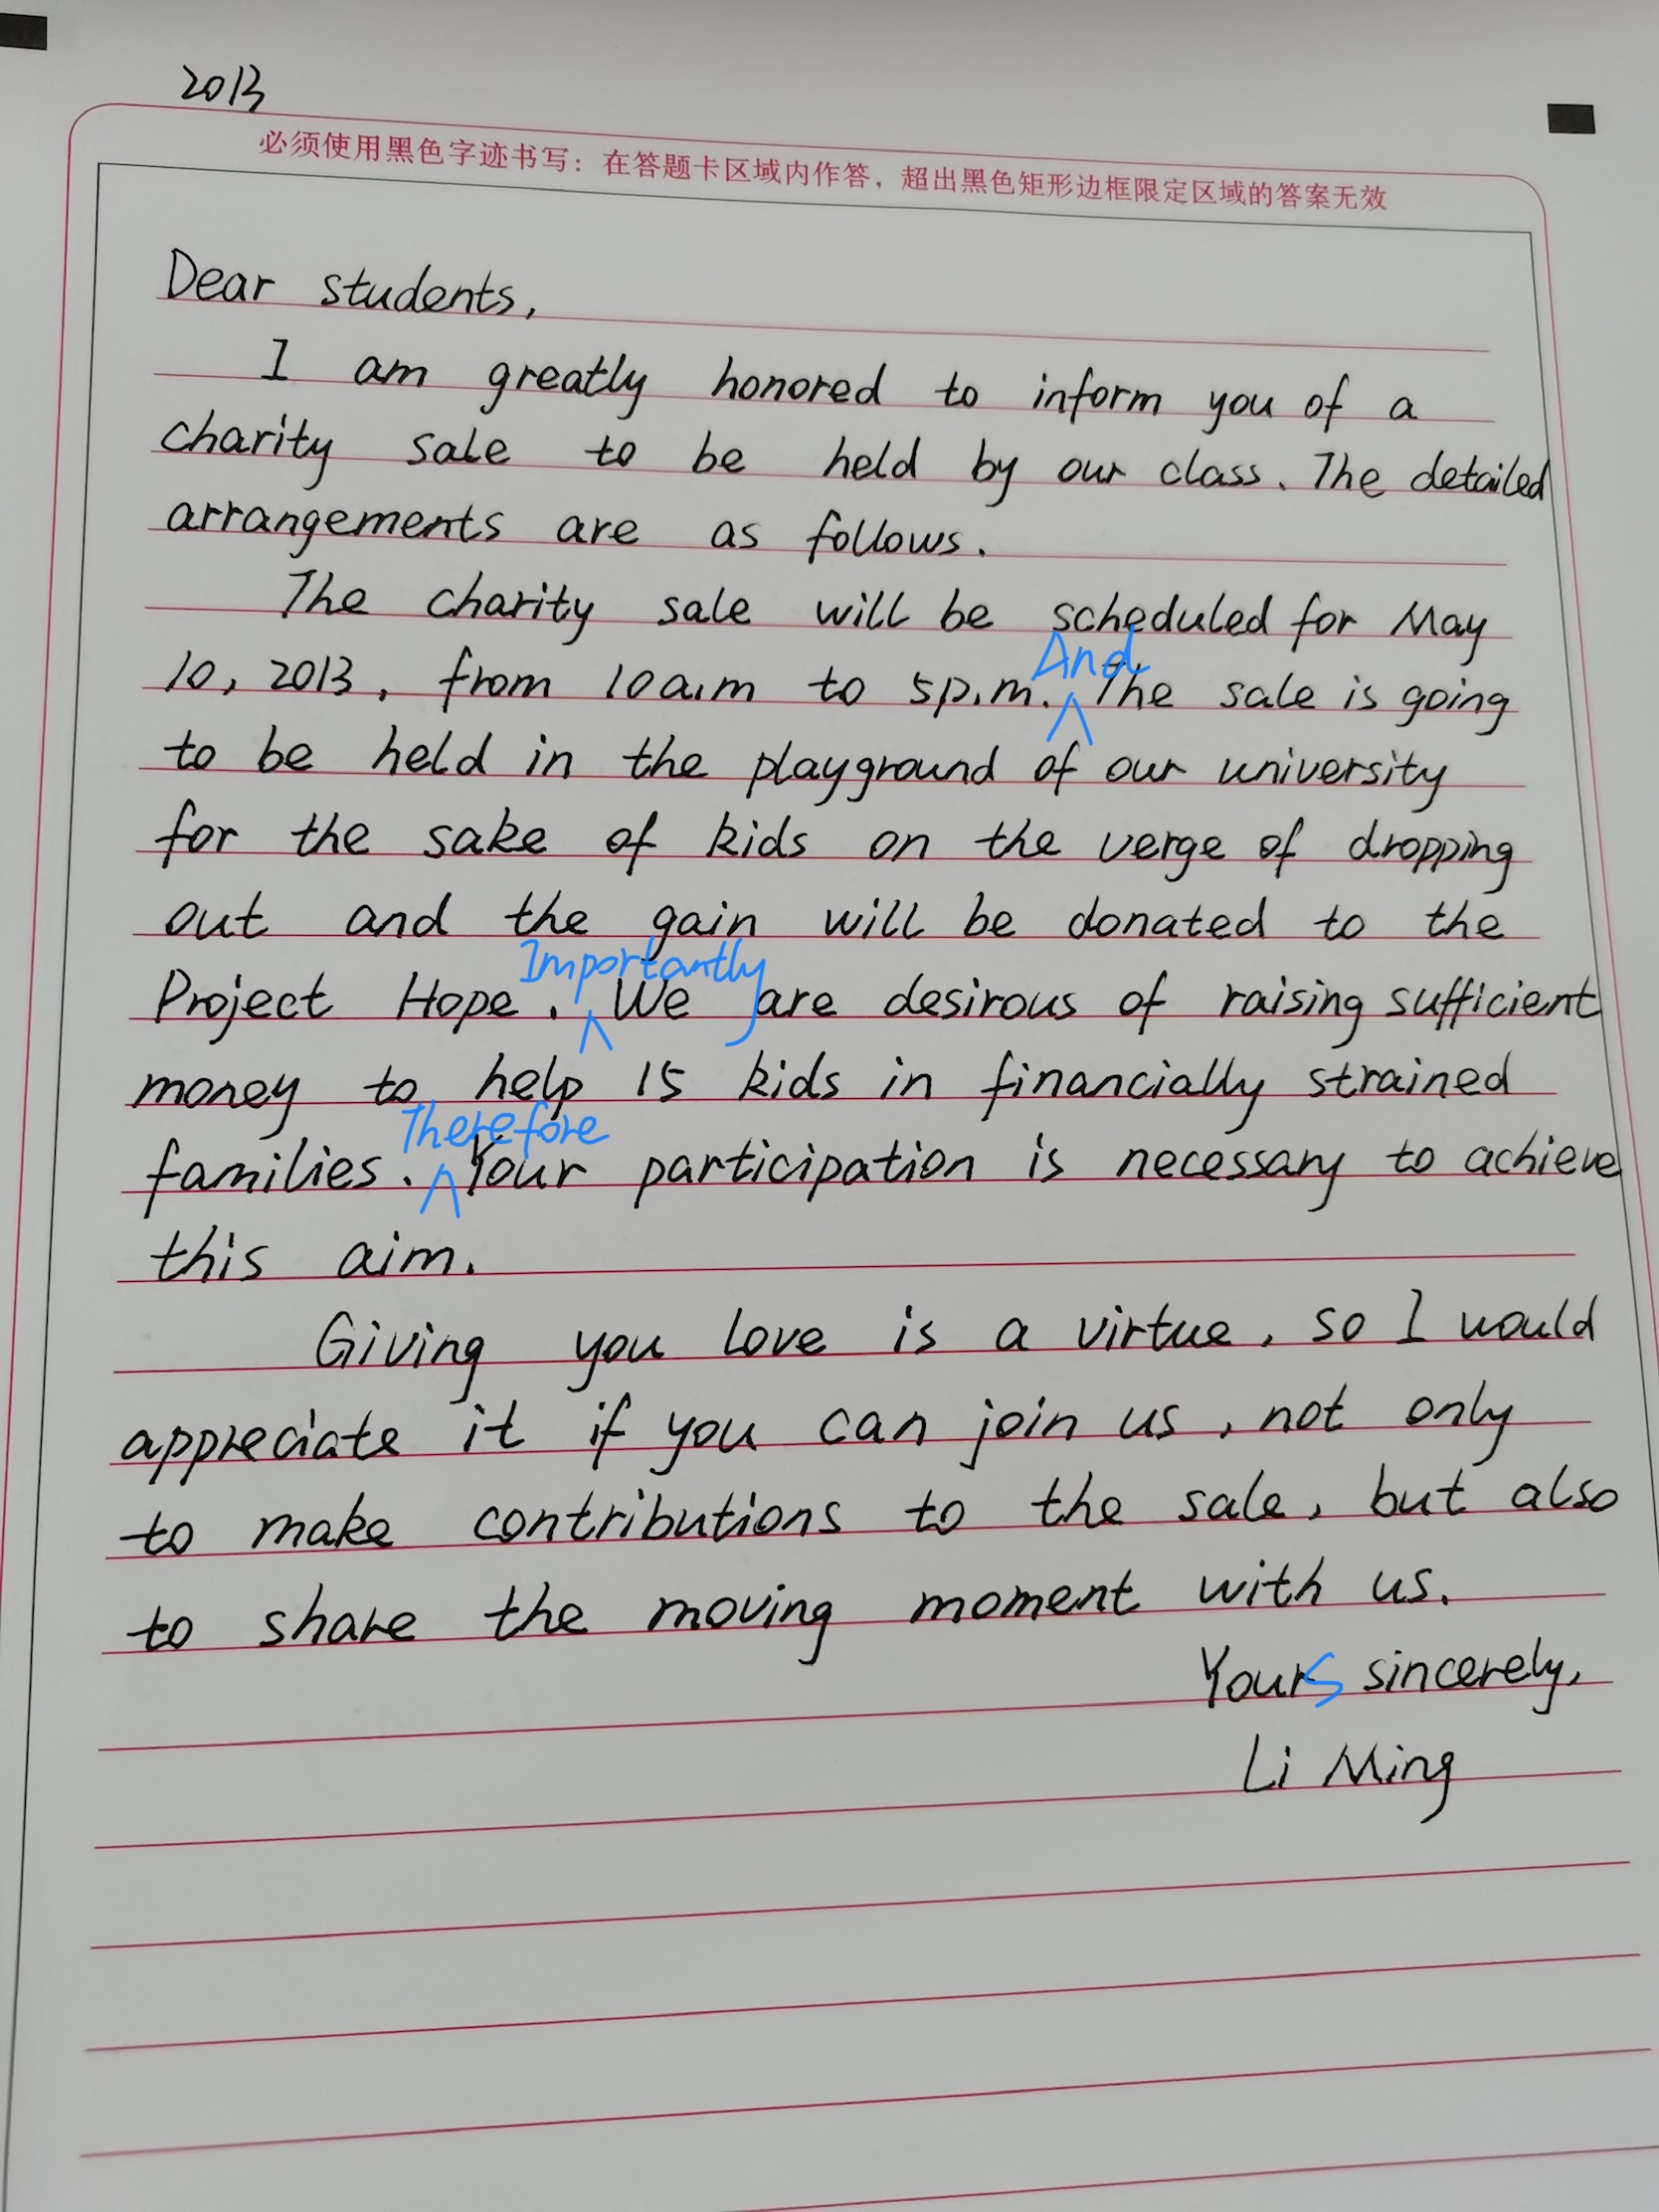 2013
必须使用黑色字迹书写：在答题卡区域内作答，超出黑色矩形边框限定区域的答案无效
Dear students,
I am greatly honored to inform you of a
charity sale to be held by our class. The detailed
arrangements are as follows.
The charity sale will be scheduled for May
And
10, 2013, from 10a.m to 5p.m. The sale is going
to be held in the playground of our university
for the sake of kids on the verge of dropping
out and the gain will be donated to the
Importantly
Project Hope. We are desirous of raising sufficient
money to help 15 kids in financially strained
Therefore
families. Your participation is necessary to achieve
this aim.
Giving you love is a virtue, so I would
appreciate it if you can join us, not only
to make contributions to the sale, but also
to share the moving moment with us.
Yours sincerely,
Li Ming